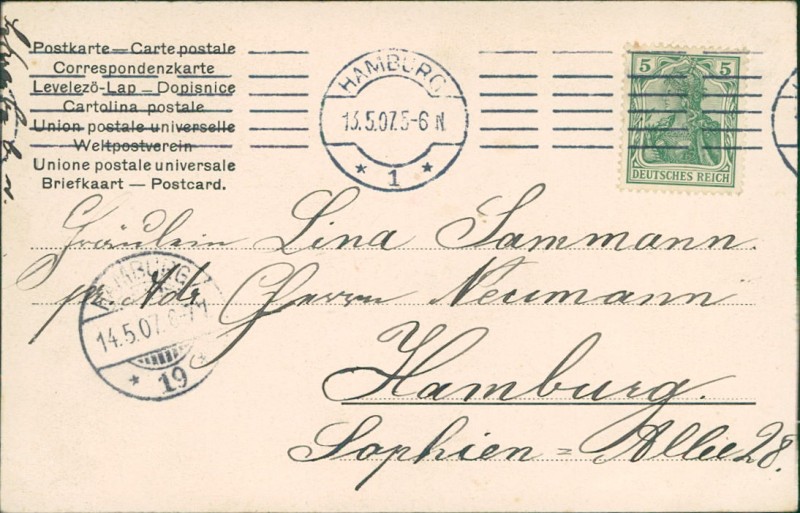 Postkarte — Carte postale
Correspondenzkarte
Levelező-Lap — Dopisnice
Cartolina postale
Union postale universelle
Weltpostverein
Unione postale universale
Briefkaart — Postcard.
HAMBURG
13.5.07.5-6 N.
* 1 *
5 5
DEUTSCHES REICH
Fräulein Lina Sammann.
pr. Adr. Herrn Neumann
Hamburg.
Sophien = Allee 28.
HAMBURG
14.5.07.6-7V
* 19 *